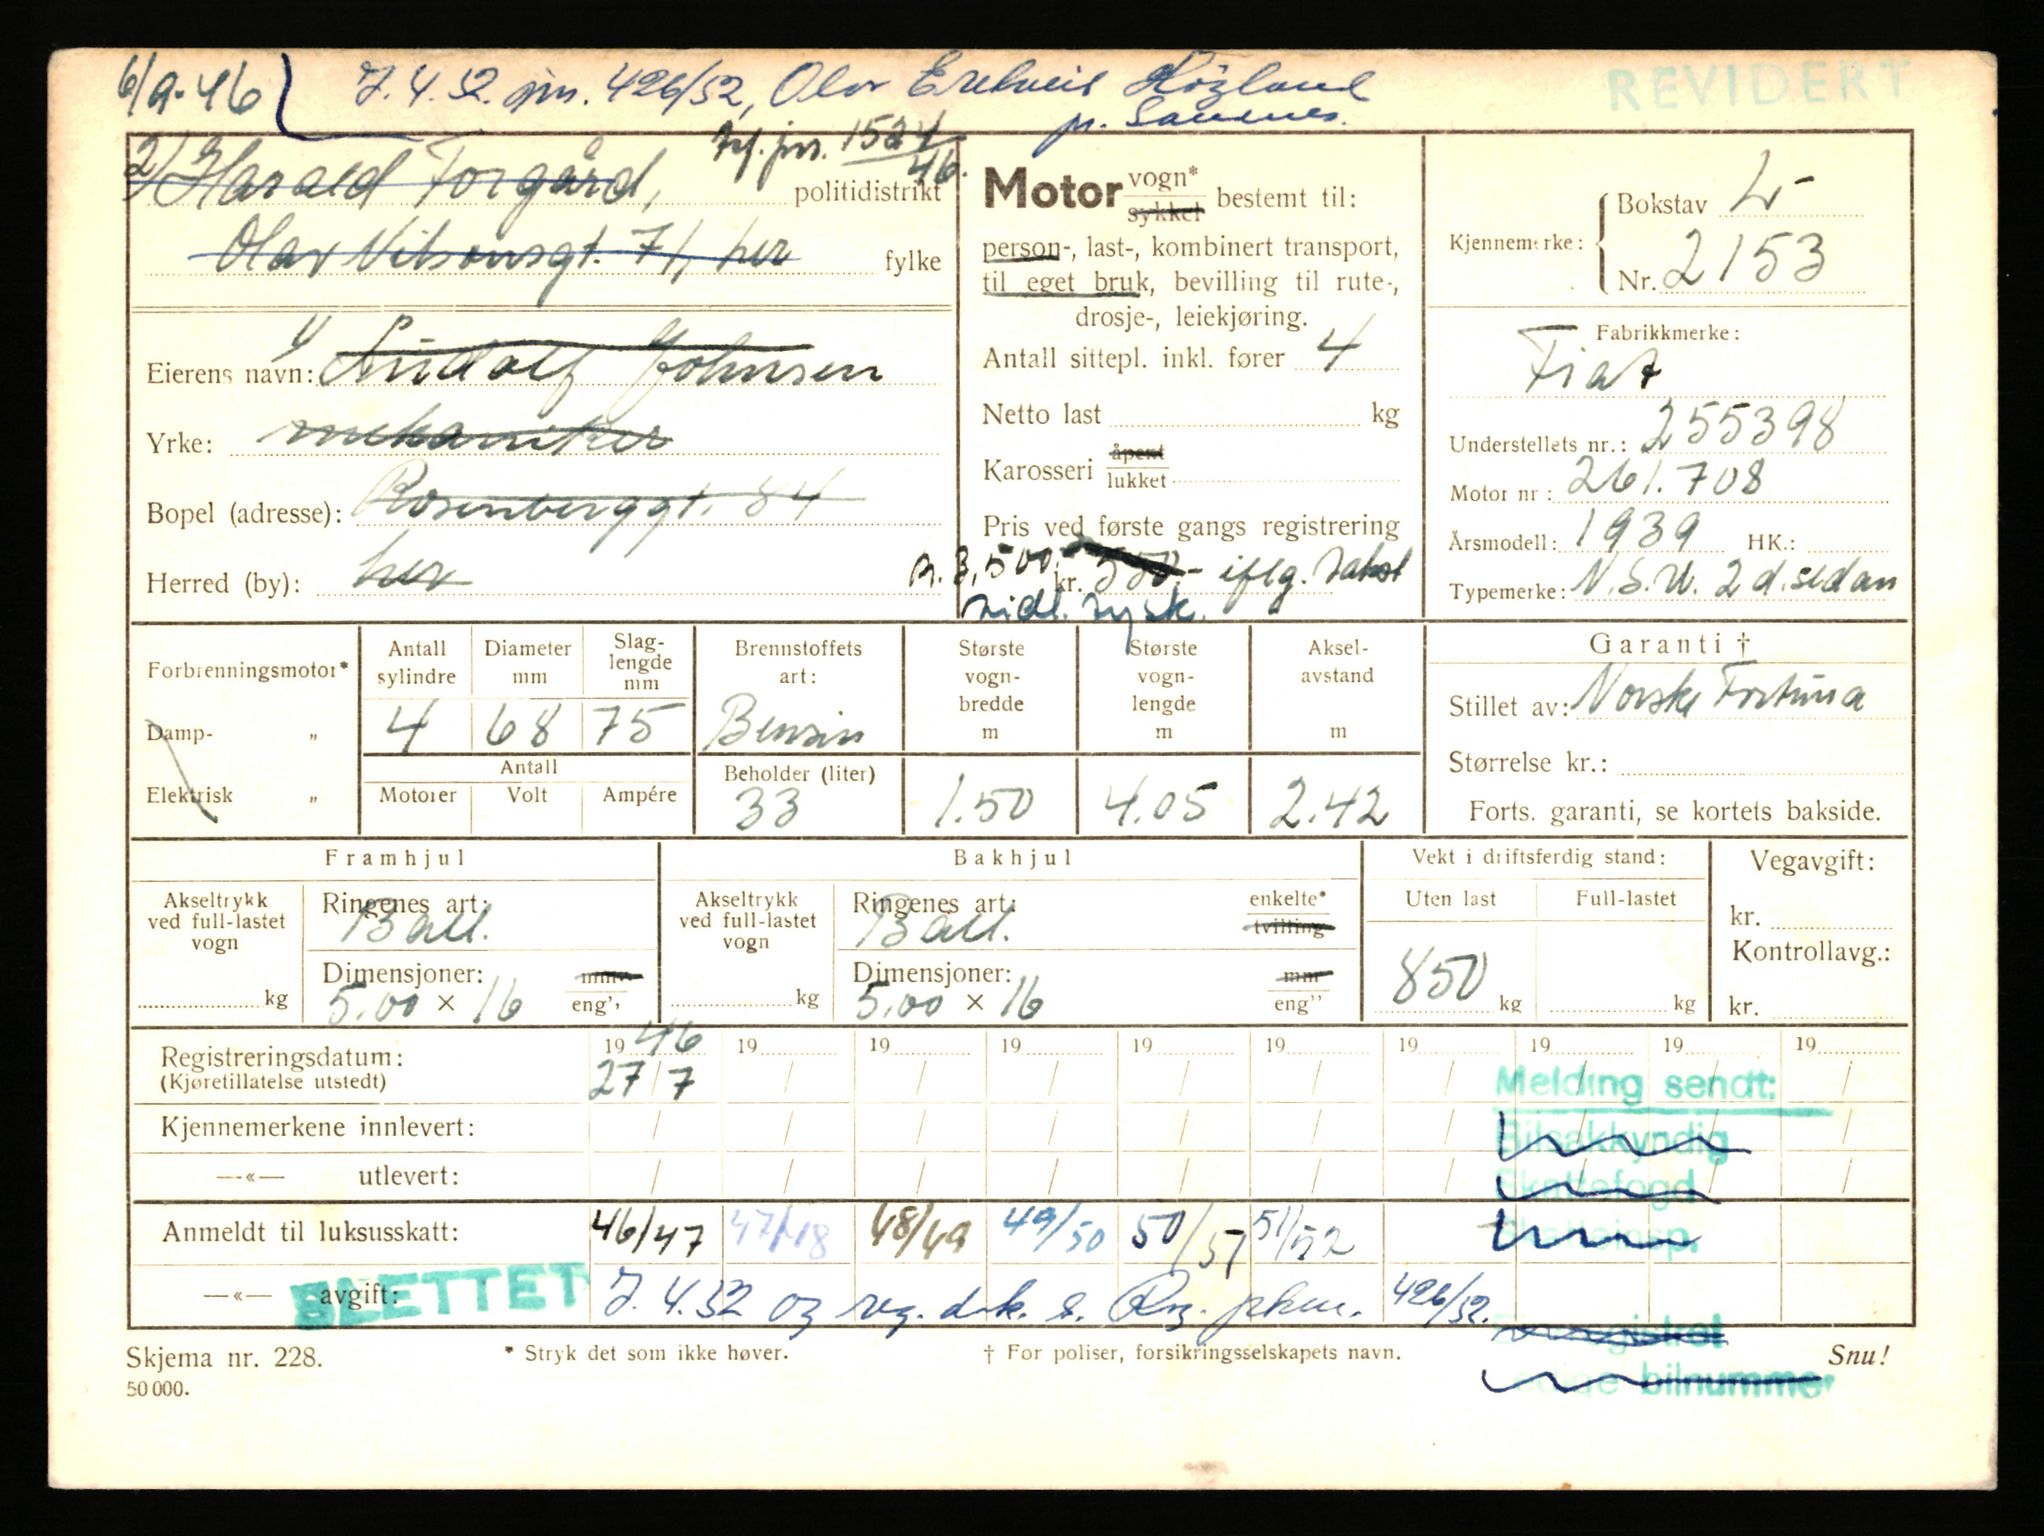 6/9-46 7.4.52. jnr. 426/52, Olav Høgland
pr. Sandnes.
REVIDERT
Tcf. jnr. 1524/46.
2) Harald Torgård, politidistrikt
Olav Nilsonsgt. 71, her fylke
Eierens navn: 1) Ludolf Johnsen
Yrke: mekaniker
Bopel (adresse): Rosenberggt. 84
Herred (by): her
Motor vogn* sykkel bestemt til:
person-, last-, kombinert transport,
til eget bruk, bevilling til rute-,
drosje-, leiekjøring.
Antall sittepl. inkl. fører 4
Netto last kg
Karosseri åpent lukket
Pris ved første gangs registrering
kr. 3,500,- iflg. takst
tidl. tysk.
Kjennemerke: Bokstav L-
Nr. 2153
Fabrikkmerke:
Fiat
Understellets nr.: 255398
Motor nr: 261.708
Årsmodell: 1939 HK.:
Typemerke: N.S.U. 2 d. sedan
Forbrenningsmotor*
Damp- „
Elektrisk „
Antall sylindre 4
Diameter mm 68
Slag-lengde mm 75
Antall
Motorer Volt Ampére
Brennstoffets art: Bensin
Beholder (liter) 33
Største vogn-bredde m 1.50
Største vogn-lengde m 4.05
Aksel-avstand m 2.42
Garanti †
Stillet av: Norske Fortuna
Størrelse kr.:
Forts. garanti, se kortets bakside.
Framhjul
Akseltrykk ved full-lastet vogn kg
Ringenes art: Ball.
Dimensjoner: 5.00 × 16 mm eng''
Bakhjul
Akseltrykk ved full-lastet vogn kg
Ringenes art: Ball. enkelte* tvilling
Dimensjoner: 5.00 × 16 mm eng''
Vekt i driftsferdig stand:
Uten last 850 kg
Full-lastet kg
Vegavgift:
kr.
Kontrollavg.:
kr.
Registreringsdatum: 1946 19 19 19 19 19 19 19 19 19
(Kjøretillatelse utstedt) 27/7 / / / / / / / / /
Melding sendt:
Kjennemerkene innlevert: / / / / / / / / / /
Bilsakkyndig
—«— utlevert: / / / / / / / / / /
Skattefogd
Anmeldt til luksusskatt: 46/47 47/48 48/49 49/50 50/51 51/52
—«— avgift: SLETTET 7.4.52 og reg. 426/52.
bilnummer
Skjema nr. 228.
* Stryk det som ikke høver.
† For poliser, forsikringsselskapets navn.
Snu!
50 000.